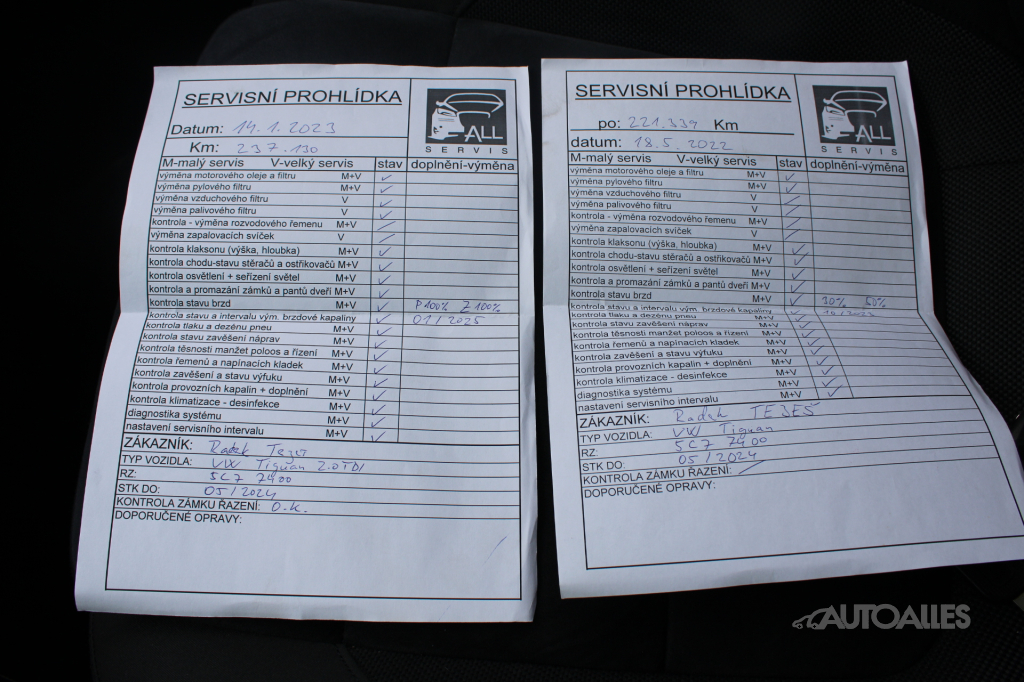 SERVISNÍ PROHLÍDKA
ALL
SERVIS
Datum: 14.1.2023
Km: 237.130
M-malý servis V-velký servis stav doplnění-výměna
výměna motorového oleje a filtru M+V ✓
výměna pylového filtru M+V ✓
výměna vzduchového filtru V ✓
výměna palivového filtru V ✓
kontrola - výměna rozvodového řemenu M+V
výměna zapalovacích svíček V
kontrola klaksonu (výška, hloubka) M+V ✓
kontrola chodu-stavu stěračů a ostřikovačů M+V ✓
kontrola osvětlení + seřízení světel M+V ✓
kontrola a promazání zámků a pantů dveří M+V ✓
kontrola stavu brzd M+V ✓ P100% Z 100%
kontrola stavu a intervalu vým. brzdové kapaliny ✓ 01/2025
kontrola tlaku a dezénu pneu M+V ✓
kontrola stavu zavěšení náprav M+V ✓
kontrola těsnosti manžet poloos a řízení M+V ✓
kontrola řemenů a napínacích kladek M+V ✓
kontrola zavěšení a stavu výfuku M+V ✓
kontrola provozních kapalin + doplnění M+V ✓
kontrola klimatizace - desinfekce M+V ✓
diagnostika systému M+V ✓
nastavení servisního intervalu M+V ✓
ZÁKAZNÍK: Radek
TYP VOZIDLA: VW Tiguan 2.0TDI
RZ: 5C7 7400
STK DO: 05/2024
KONTROLA ZÁMKU ŘAZENÍ: O.K.
DOPORUČENÉ OPRAVY:
SERVISNÍ PROHLÍDKA
ALL
SERVIS
po: 221.339 Km
datum: 18.5.2022
M-malý servis V-velký servis stav doplnění-výměna
výměna motorového oleje a filtru M+V ✓
výměna pylového filtru M+V ✓
výměna vzduchového filtru V
výměna palivového filtru V
kontrola - výměna rozvodového řemenu M+V
výměna zapalovacích svíček V
kontrola klaksonu (výška, hloubka) M+V ✓
kontrola chodu-stavu stěračů a ostřikovačů M+V ✓
kontrola osvětlení + seřízení světel M+V ✓
kontrola a promazání zámků a pantů dveří M+V ✓
kontrola stavu brzd M+V ✓ 30% 50%
kontrola stavu a intervalu vým. brzdové kapaliny ✓
kontrola tlaku a dezénu pneu M+V ✓
kontrola stavu zavěšení náprav M+V ✓
kontrola těsnosti manžet poloos a řízení M+V ✓
kontrola řemenů a napínacích kladek M+V ✓
kontrola zavěšení a stavu výfuku M+V ✓
kontrola provozních kapalin + doplnění M+V ✓
kontrola klimatizace - desinfekce M+V ✓
diagnostika systému M+V ✓
nastavení servisního intervalu M+V ✓
ZÁKAZNÍK: Radek
TYP VOZIDLA: VW Tiguan
RZ: 5C7 7400
STK DO: 05/2024
KONTROLA ZÁMKU ŘAZENÍ:
DOPORUČENÉ OPRAVY:
AUTOALLES